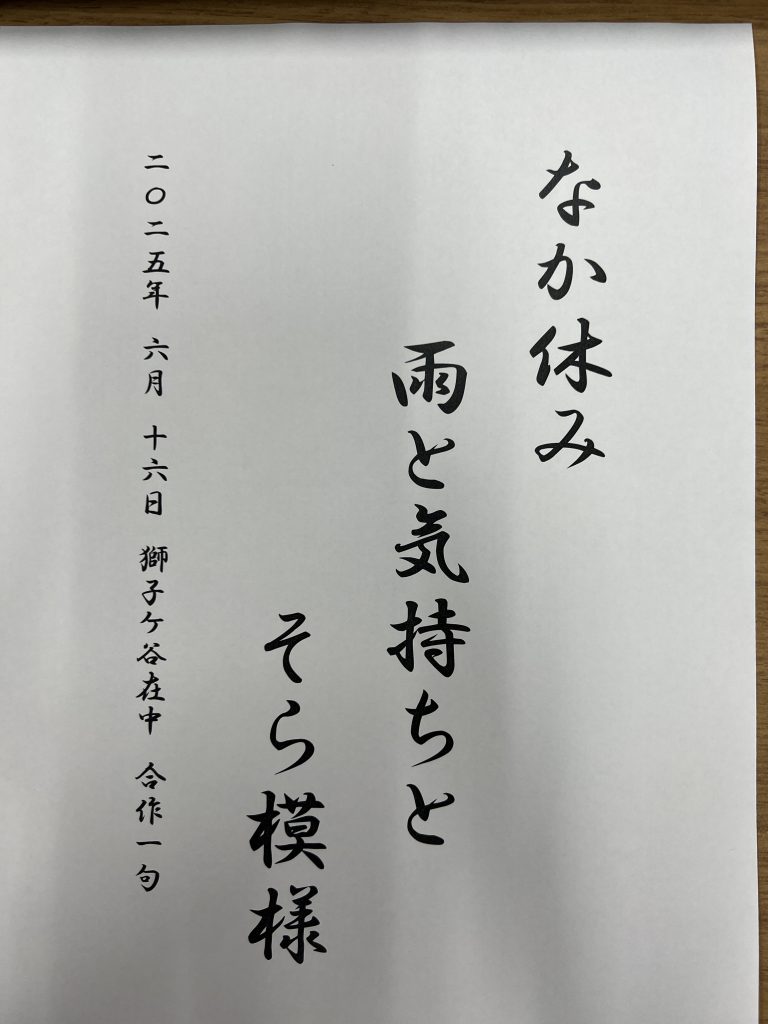 なか休み
雨と気持ちと
そら模様
二〇二五年 六月 十六日 獅子ケ谷在中 合作一句